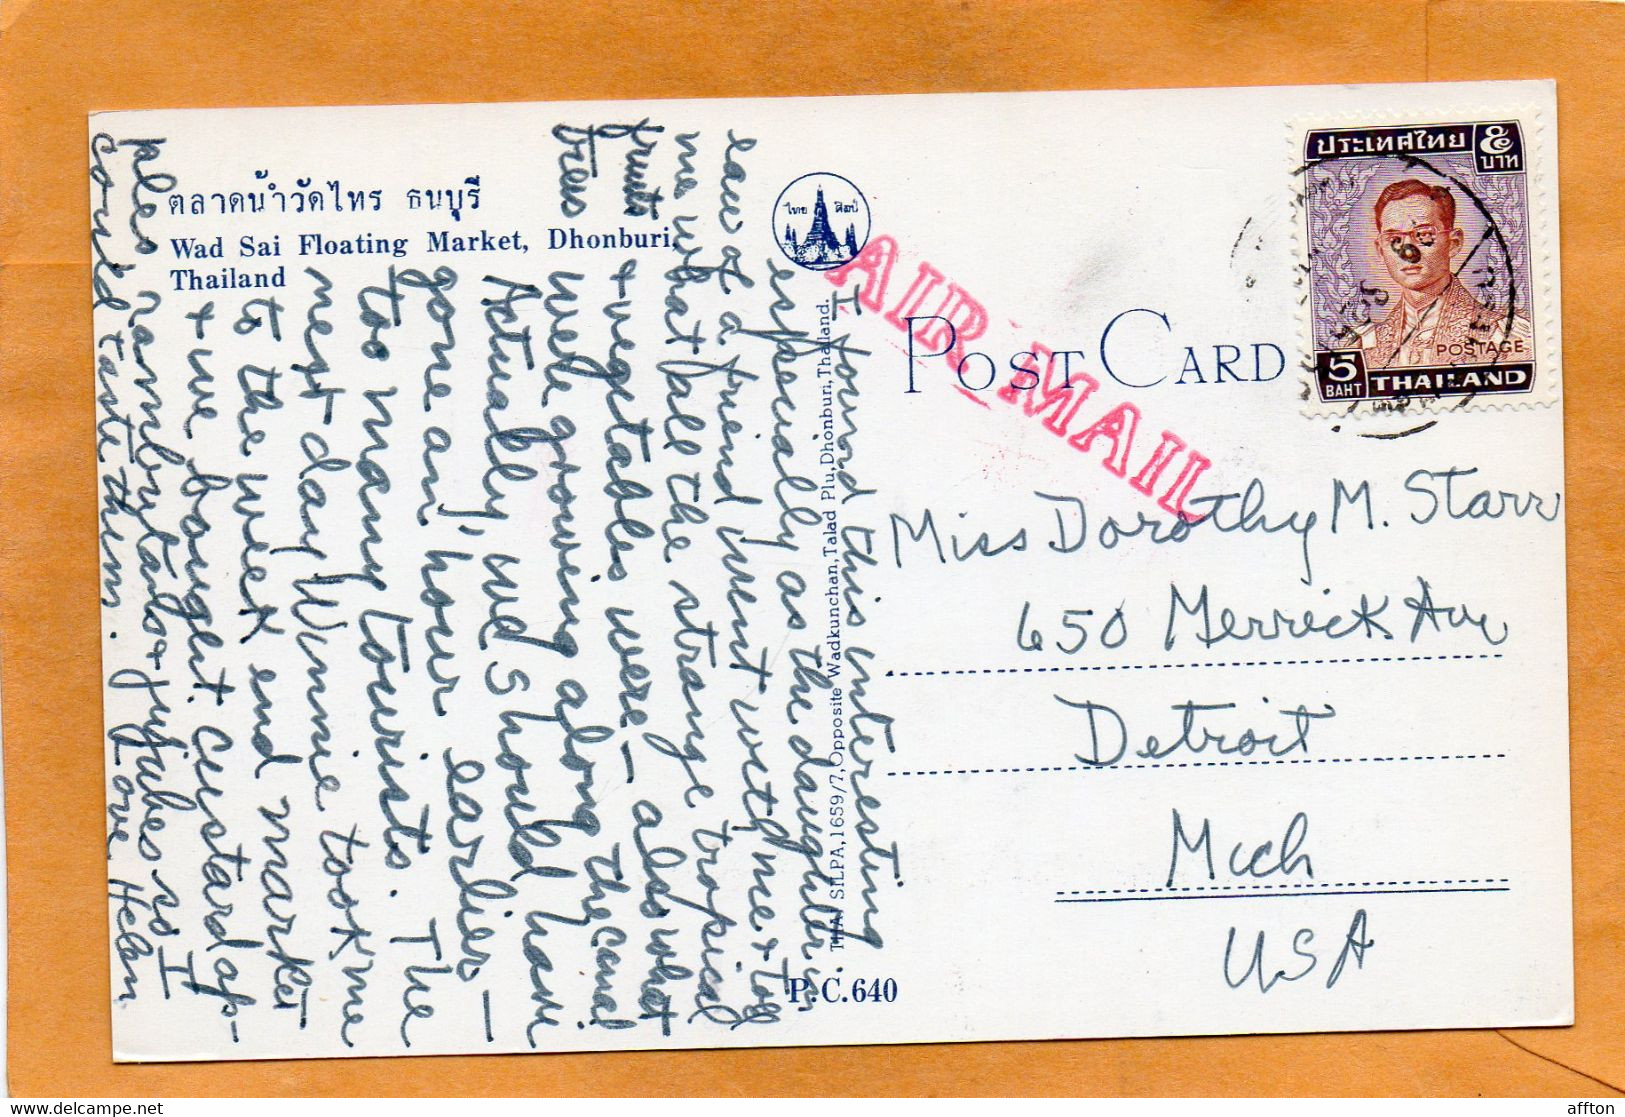 ตลาดน้ำวัดไทร ธนบุรี
Wad Sai Floating Market, Dhonburi,
Thailand
ไทย ศิลป์
AIR MAIL
POST CARD
ประเทศไทย ๕
บาท
POSTAGE
5
BAHT THAILAND
I found this interesting
especially as the daughter in
law of a friend went with me & told
me what all the strange tropical
fruits & vegetables were – also what
trees were growing along the canal
Actually, we should have
gone an hour earlier –
too many tourists. The
next day Winnie took me
to the week end market
& we bought custard ap-
ples rambutans & jujubes so I
could taste them. Love Helen
THAI SILPA, 1659/7, Opposite Wadkunchan, Talad Plu, Dhonburi, Thailand.
P.C.640
Miss Dorothy M. Starr
650 Merrick Ave
Detroit
Mich
USA
affton